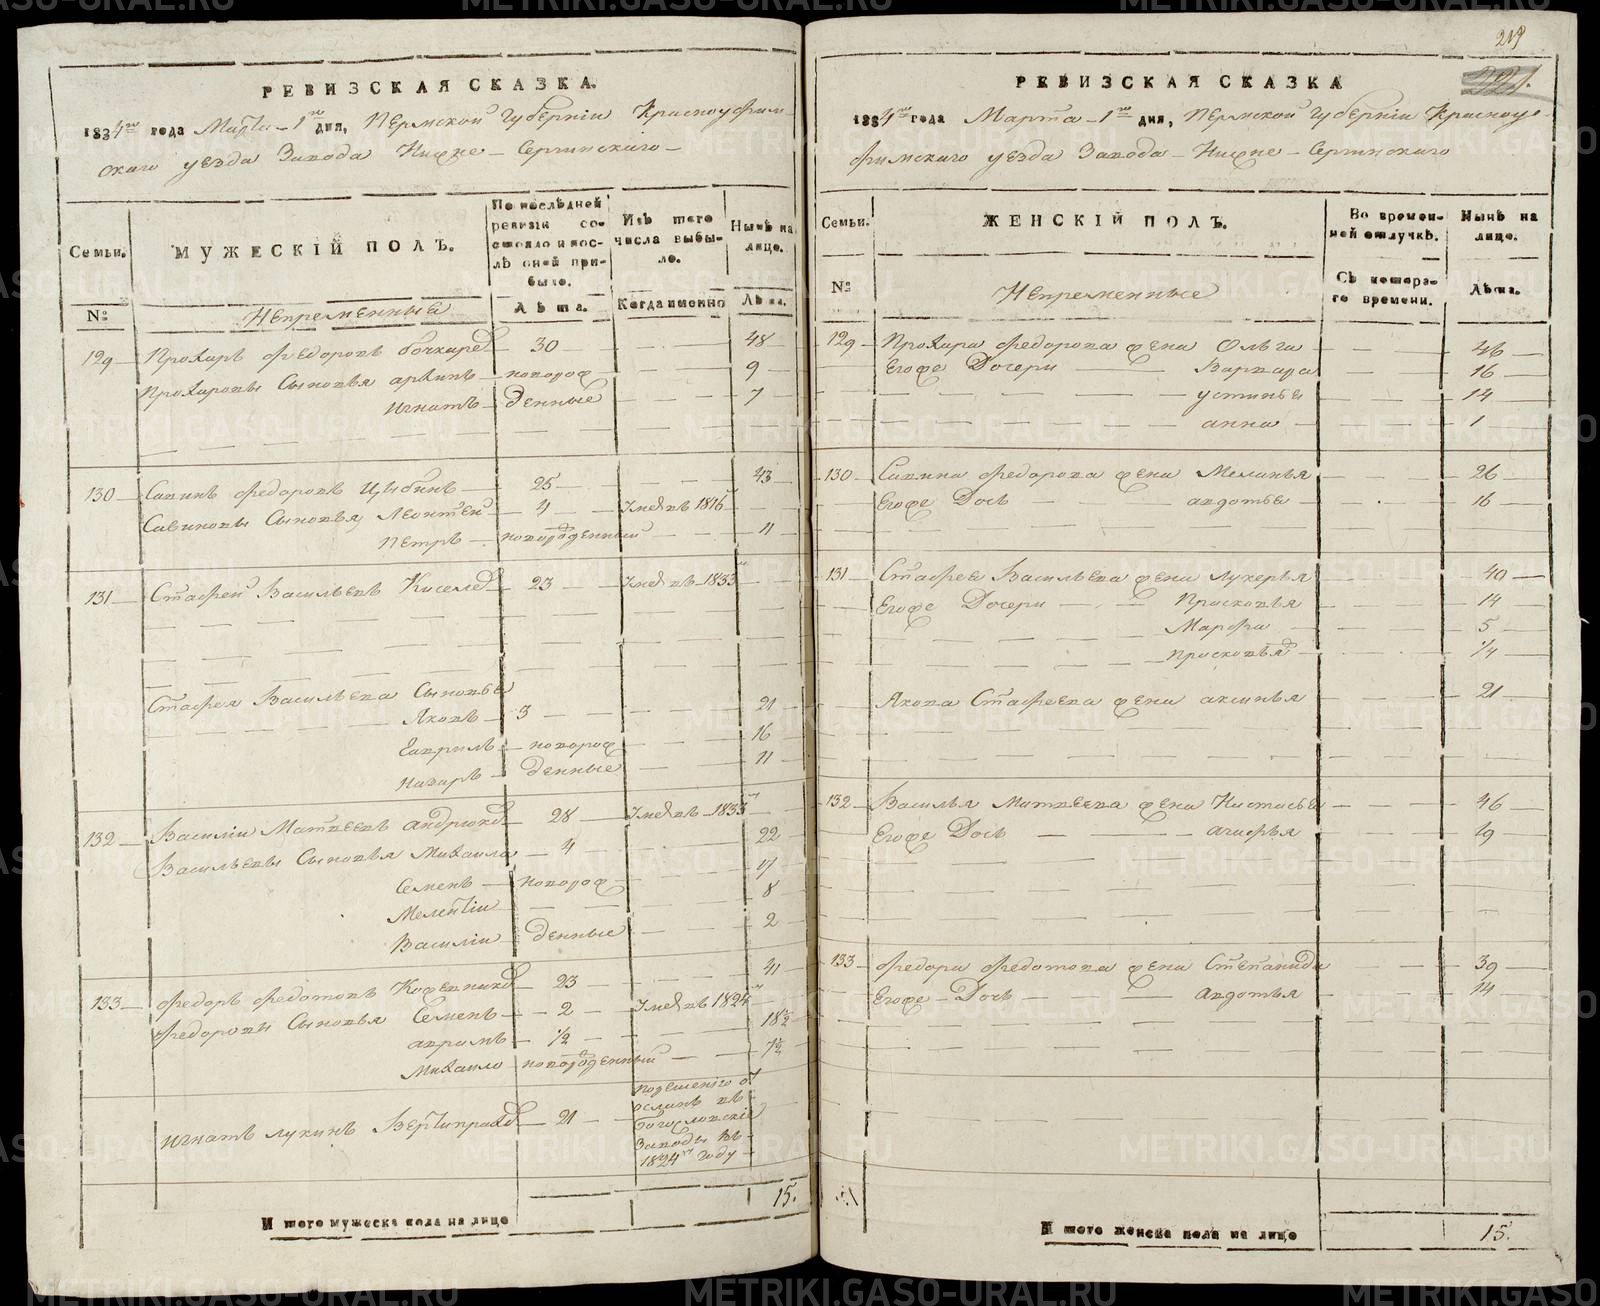 219
РЕВИЗСКАЯ СКАЗКА.
1834го года Марта 1го дня, Пермской Губернии Красноуфим-
скаго уезда Завода Нижне-Сергинскаго
Семьи.
МУЖЕСКІЙ ПОЛЪ.
По послѣдней ревизіи состояло и послѣ оной прибыло.
Изъ того числа выбыло.
Нынѣ на лице.
№
Непременные
Лѣта.
Когда именно
Лѣта.
129 Прохоръ Федоровъ Бочкаре 30 48
Прохоровы Сыновья Архипъ новорож 9
Игнатъ денные 7
130 Савинъ Федоровъ Цыбинъ 25 43
Савиновы Сыновья Леонтей 4 Умеръ въ 1816
Петръ новорожденный 11
131 Стафей Васильевъ Киселев 23 Умеръ въ 1833
Стафея Васильева Сыновья
Яковъ 3 21
Гаврилъ новорож 16
Назаръ денные 11
132 Василiи Матвеевъ Андрюков 28 Умеръ въ 1833
Васильевы Сыновья Михаила 4 22
Семенъ новорож 17
Мелентiи 8
Василiи денные 2
133 Федоръ Федотовъ Кожевников 23 41
Федоровы Сыновья Семенъ 2 Умеръ въ 1824
Авралъ 1/2 18½
Михаило новорожденный 7½
Игнатъ Лукинъ Вертипрахов 21
сосланъ въ
Богословскiе
Заводы въ
1824м году
15.
И того мужеска пола на лице
РЕВИЗСКАЯ СКАЗКА
1834го года Марта 1го дня, Пермской Губернiи Красноу-
фимскаго уезда Завода Нижне-Сергинскаго
Семьи.
ЖЕНСКІЙ ПОЛЪ.
Во временной отлучкѣ.
Нынѣ на лице.
№
Непременные
Съ котораго времени.
Лѣта.
129 Прохора Федорова жена Ольга 46
Егоже Дочери Варвара 16
Устинья 14
Анна 1
130 Савина Федорова жена Меланья 26
Егоже Дочь Авдотья 16
131 Стафея Васильева жена Лукерья 40
Егоже Дочери Прасковья 14
Марфа 5
Прасковья 1/4
Якова Стафеева жена Аксинья 21
132 Василья Матвеева жена Настасья 46
Егоже Дочь Агафья 19
133 Федора Федотова жена Степанида 39
Егоже Дочь Авдотья 14
И того женска пола на лице
15.
METRIKI.GASO-URAL.RU